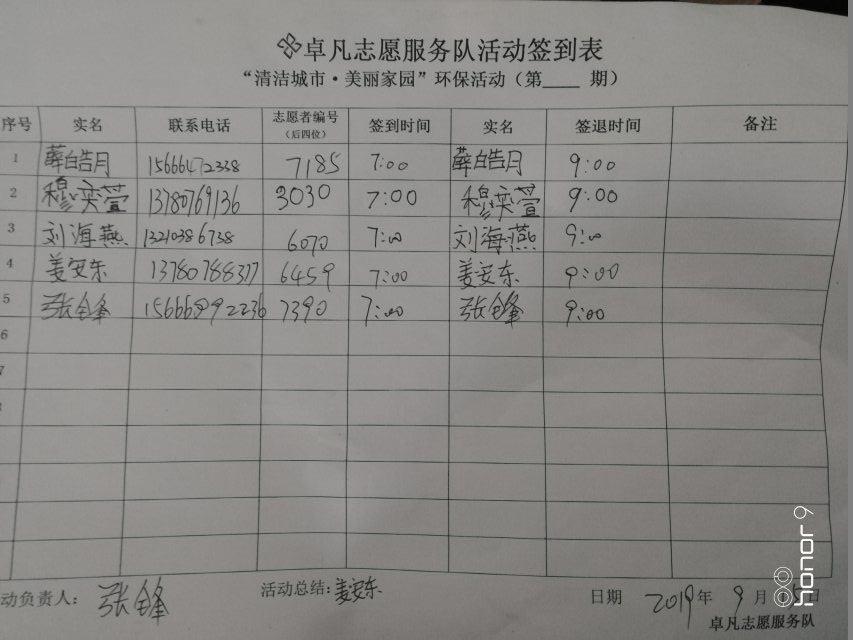 卓凡志愿服务队活动签到表
“清洁城市·美丽家园”环保活动（第____ 期）
序号 实名 联系电话 志愿者编号（后四位） 签到时间 实名 签退时间 备注
1 薛皓月 15666472338 7185 7:00 薛皓月 9:00
2 穆奕萱 13780769136 3030 7:00 穆奕萱 9:00
3 刘海燕 13210386738 6070 7:00 刘海燕 9:00
4 姜安东 13780788377 6459 7:00 姜安东 9:00
5 张锋 7390 7:00 张锋 9:00
6
7
动负责人： 张锋 活动总结: 姜安东 日期 2019年 9月 15日
卓凡志愿服务队
honor 9